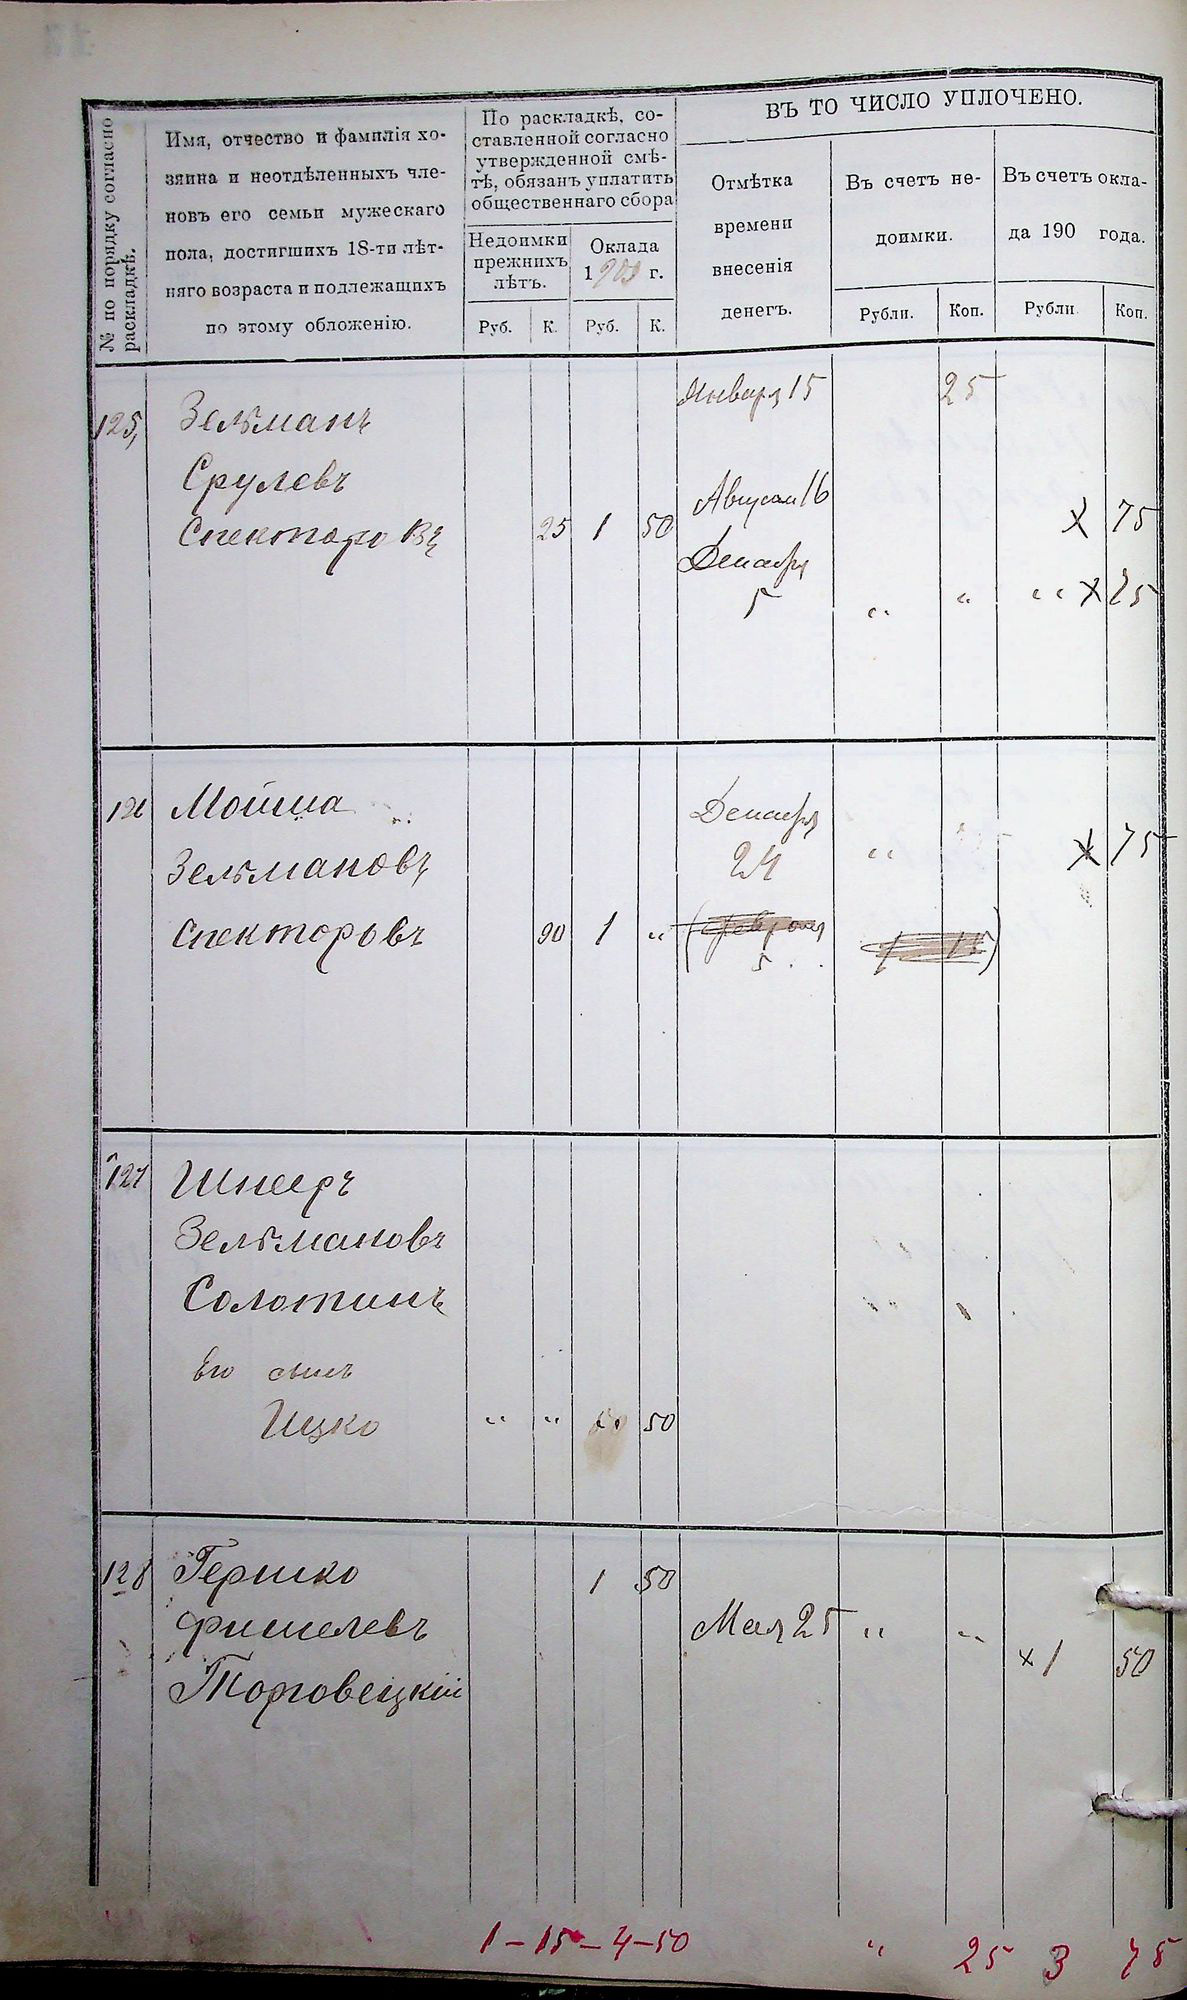 ВЪ ТО ЧИСЛО УПЛОЧЕНО.
№ по порядку согласно
раскладкѣ.
Имя, отчество и фамилія хо-
зяина и неотдѣленныхъ чле-
новъ его семьи мужескаго
пола, достигшихъ 18-ти лѣт-
няго возраста и подлежащихъ
по этому обложенію.
По раскладкѣ, со-
ставленной согласно
утвержденной смѣ-
тѣ, обязанъ уплатить
общественнаго сбора
Недоимки
прежнихъ
лѣтъ.
Оклада
1903 г.
Отмѣтка
времени
внесенія
денегъ.
Въ счетъ не-
доимки.
Въ счетъ окла-
да 190 года.
Руб. К. Руб. К. Рубли. Коп. Рубли Коп.
Января 15 25
125, Зельманъ
Срулевъ
Август 16
Спекторовъ 25 1 50 х 75
Декабря
5 " " " х 75
126 Мойша Декабря
Зельмановъ 24 " х 75
Спекторовъ 90 1 " (февраля
5
127 Шнеръ
Зельмановъ
Солотинъ
Его сынъ
Ицко " " " 50
128 Гершко 1 50
Фишелевъ Мая 25 " "
х 1 50
Торговецкій
1 – 15 – 4 – 50 " 25 3 75